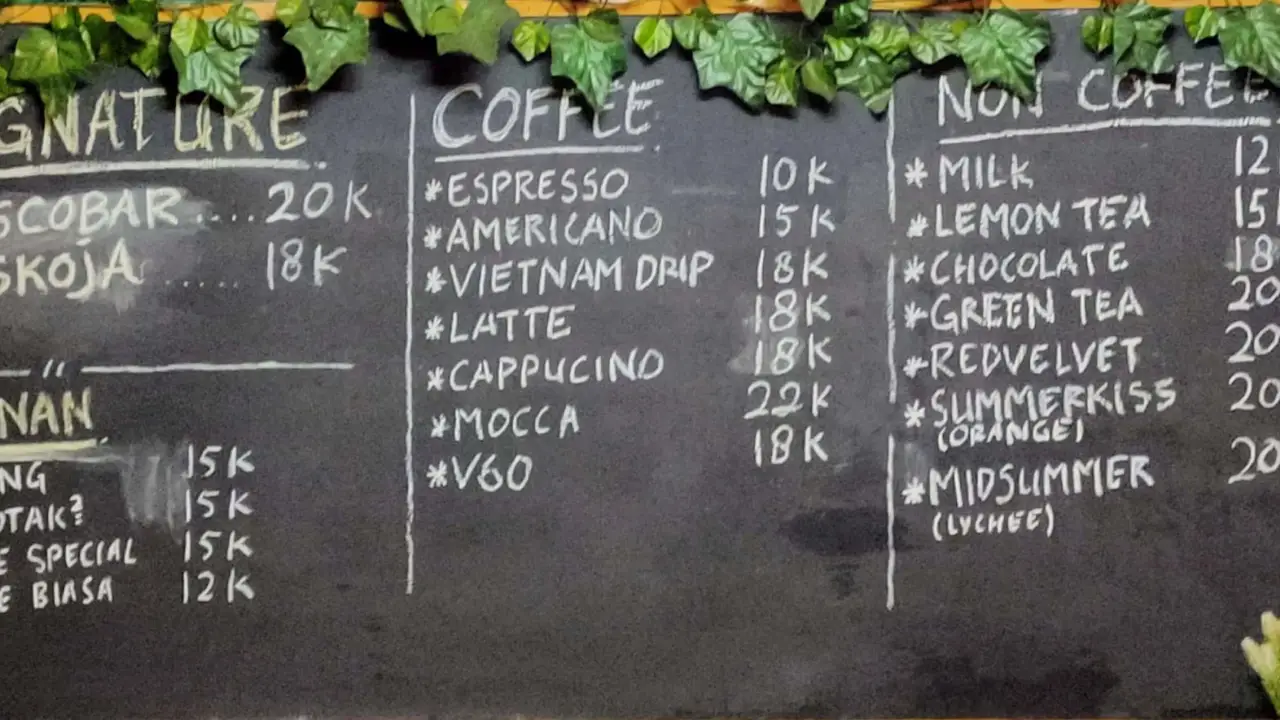 GNATURE
SCOBAR .... 20K
SKOJA ..... 18K
NAN
NG 15K
OTAK² 15K
E SPECIAL 15K
E BIASA 12K
COFFEE
*ESPRESSO 10K
*AMERICANO 15K
*VIETNAM DRIP 18K
*LATTE 18K
*CAPPUCINO 18K
*MOCCA 22K
*V60 18K
NON COFFEE
*MILK 12
*LEMON TEA 15
*CHOCOLATE 18
*GREEN TEA 20
*REDVELVET 20
*SUMMERKISS 20
(ORANGE)
*MIDSUMMER 20
(LYCHEE)